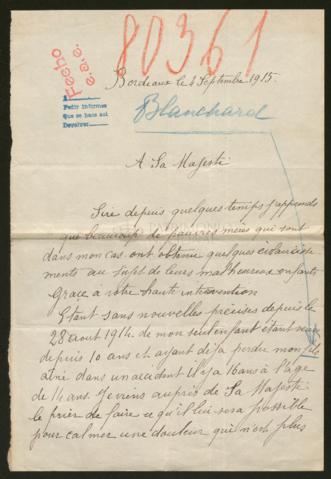 80361
Fecho
e.a.e.
Bordeaux le 4 Septembre 1915.
Pedir informes
Que se hace así
Devolver
Blanchard
A Sa Majesté
Sire depuis quelques temps j'apprends
que beaucoup de pauvres mères qui sont
dans mon cas ont obtenu quelques éclaircisse
ments au sujet de leurs malheureux enfants
Grace à votre haute intervention
Etant sans nouvelles précises depuis le
28 aout 1914 de mon seul enfant étant veuve
depuis 10 ans et ayant déja perdu mon fils
ainé dans un accident il y a 16 ans à l'âge
de 14 ans. Je viens auprès de Sa Majesté
le prier de faire ce qu'il lui sera possible
pour calmer une douleur qui n'est plus